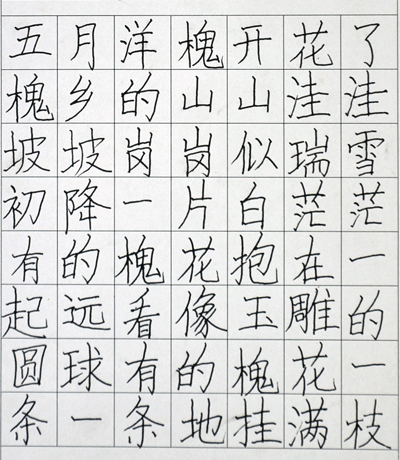 五月洋槐开花了
槐乡的山山洼洼
坡坡岗岗似瑞雪
初降一片白茫茫
有的槐花抱在一
起远看像玉雕的
圆球有的槐花一
条一条地挂满枝